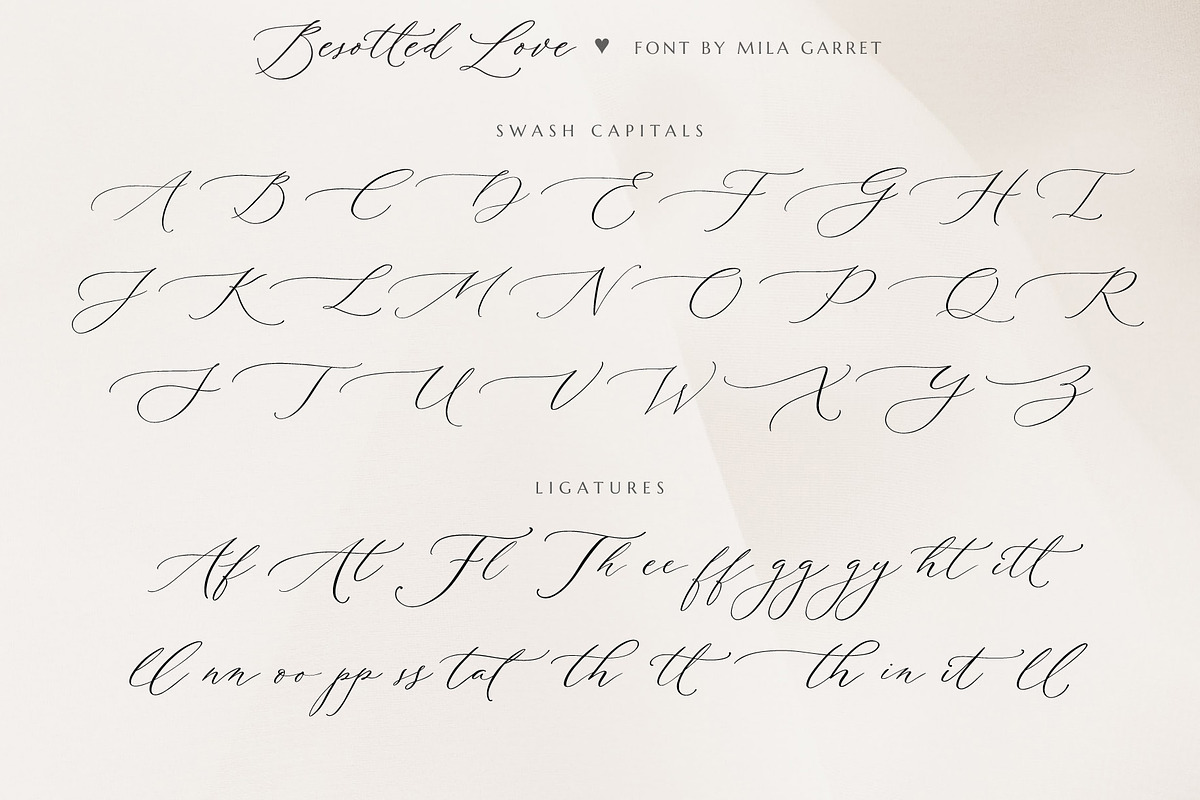 Besotted Love ♥ FONT BY MILA GARRET
SWASH CAPITALS
A B C D E F G H I
J K L M N O P Q R
S T U V W X Y Z
LIGATURES
Af At Fl Th ee ff gg gy ht itt
ll nn oo pp ss tat th tt th in it ll